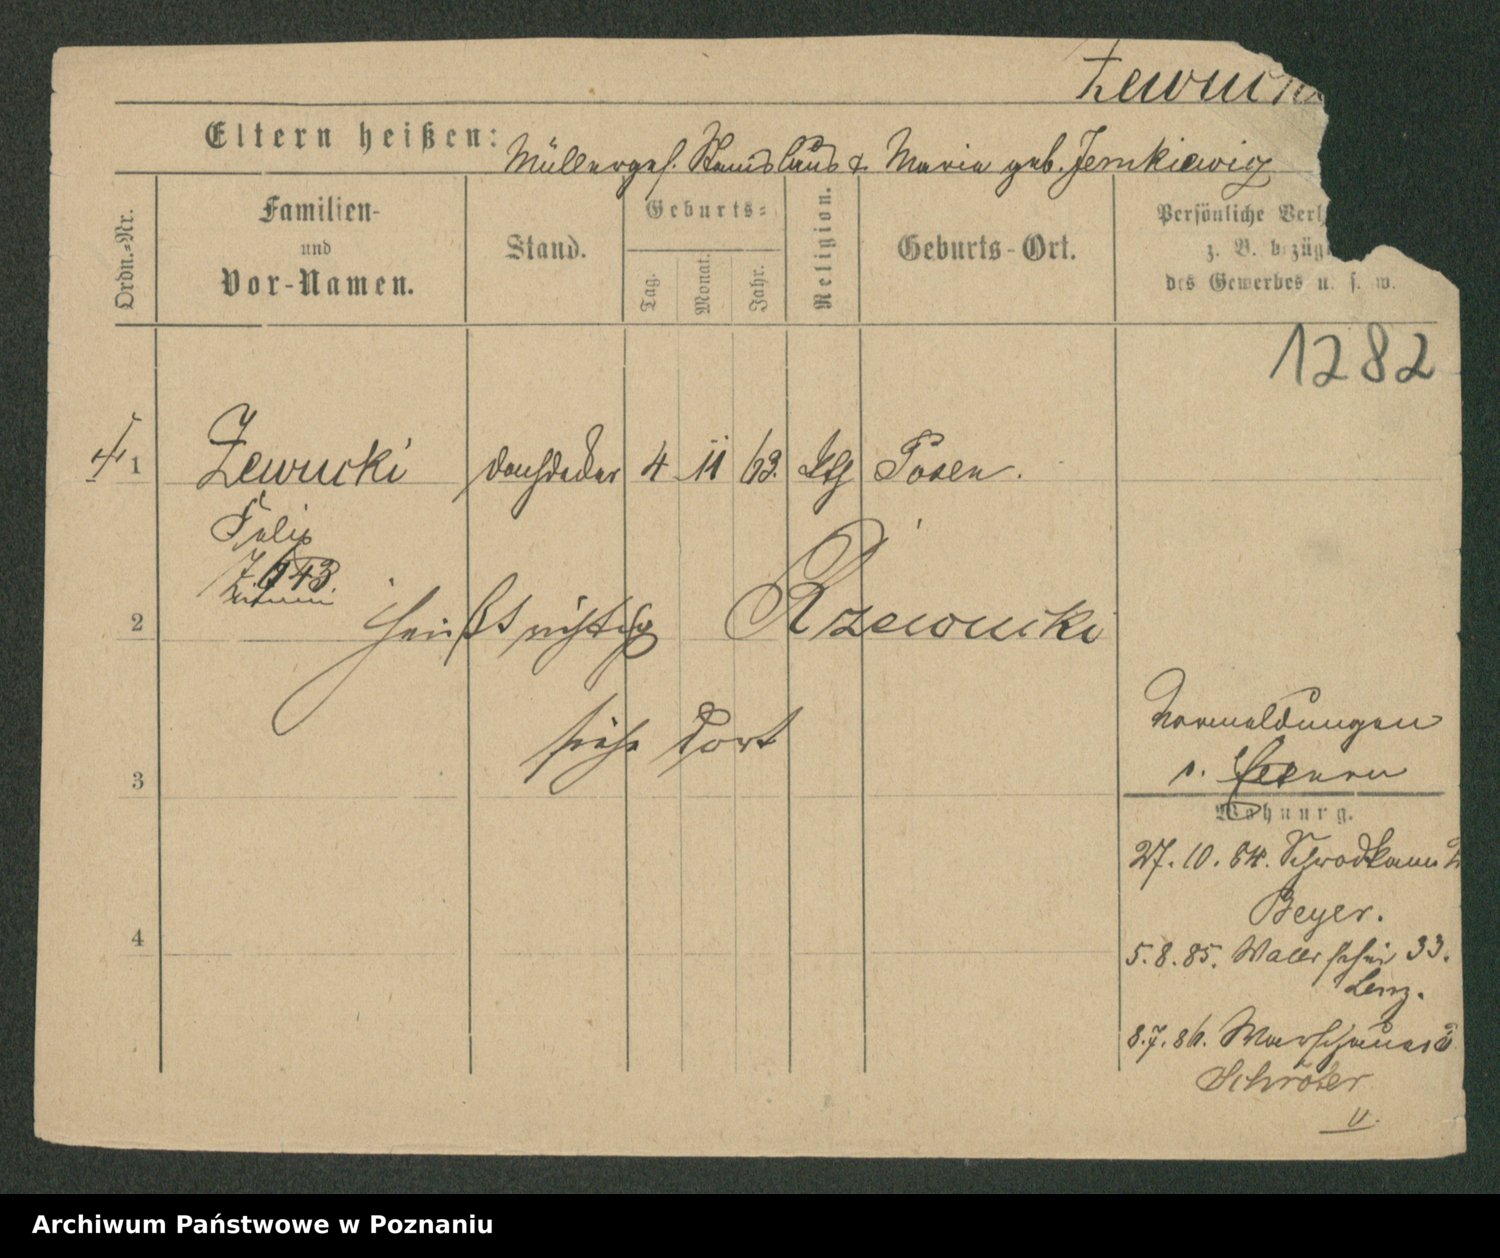 Zewucki
Eltern heißen: Müllerges. Stanislaus & Maria geb. Jernkiewicz
Ordn.-Nr.
Familien-
und
Vor-Namen.
Stand.
Geburts-
Tag.
Monat.
Jahr.
Religion.
Geburts-Ort.
Persönliche Verl
z. B. bezüg
des Gewerbes u. s. w.
1282
† 1 Zewucki Dachdecker 4 11 63. kth Posen.
Felix
2 heißt richtig Rzewucki
siehe dort
Vormeldungen
s.
3
Wohnung.
27. 10. 84. Schrodkamm 2
Beyer.
4
5. 8. 85. Wallischei 33.
Lenz.
8. 7. 86. Warschauer
Schröter
Archiwum Państwowe w Poznaniu